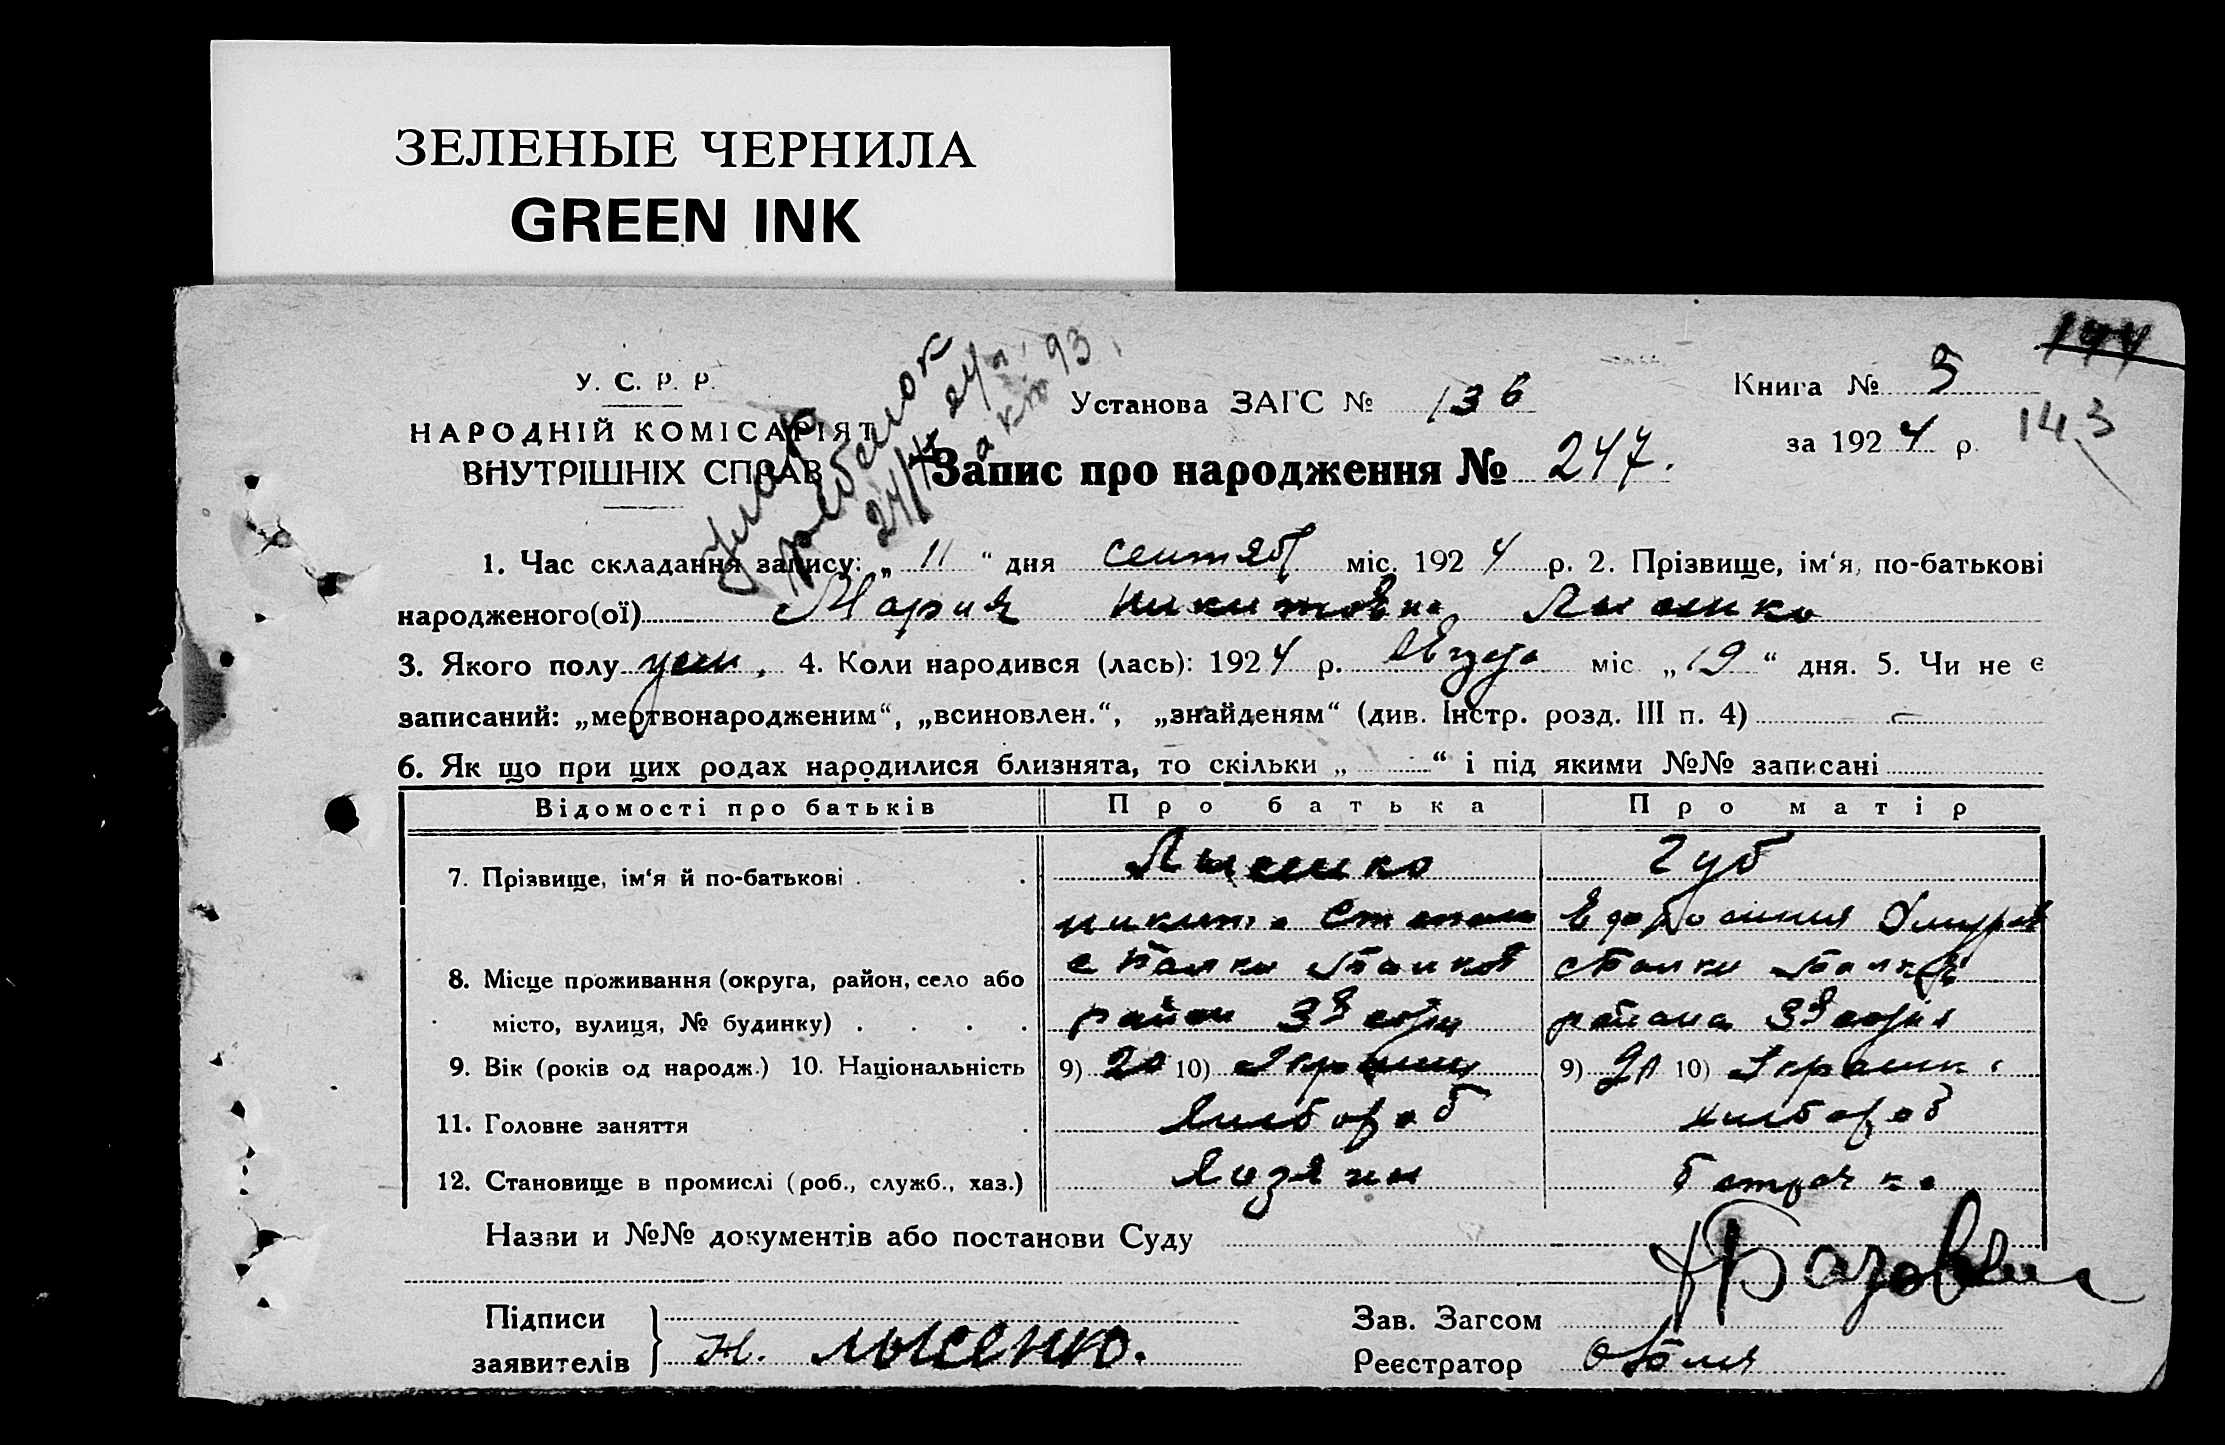 ЗЕЛЕНЫЕ ЧЕРНИЛА
GREEN INK
У. С. Р. Р.
НАРОДНІЙ КОМІСАРІЯТ
ВНУТРІШНІХ СПРАВ
Установа ЗАГС № 136
Книга № 5
144
за 1924 р.
143
Запис про народження № 247.
1. Час складання запису: „ 11 “ дня сентяб міс. 1924 р. 2. Прізвище, ім‘я, по-батькові
народженого(ої) Мария Никитовна Лысенко
3. Якого полу жен. 4. Коли народився (лась): 1924 р. Августа міс „ 19 “ дня. 5. Чи не є
записаний: „мертвонародженим“, „всиновлен.“, „знайденям“ (див. Інстр. розд. III п. 4) —
6. Як що при цих родах народилися близнята, то скільки „ — “ і під якими №№ записані
Відомості про батьків Про батька Про матір
7. Прізвище, ім‘я й по-батькові Лысенко Губ
Никита Степан Ефросиния
8. Місце проживання (округа, район, село або
місто, вулиця, № будинку) район района
9. Вік (років од народж.) 10. Національність 9) 20 10) Украин 9) 20 10) Украинк
11. Головне заняття Хлебороб Хлебороб
12. Становище в промислі (роб., служб., хаз.) Хозяин батрачка
Назви и №№ документів або постанови Суду
Підписи
заявителів Н. Лысенко.
Зав. Загсом
Реєстратор